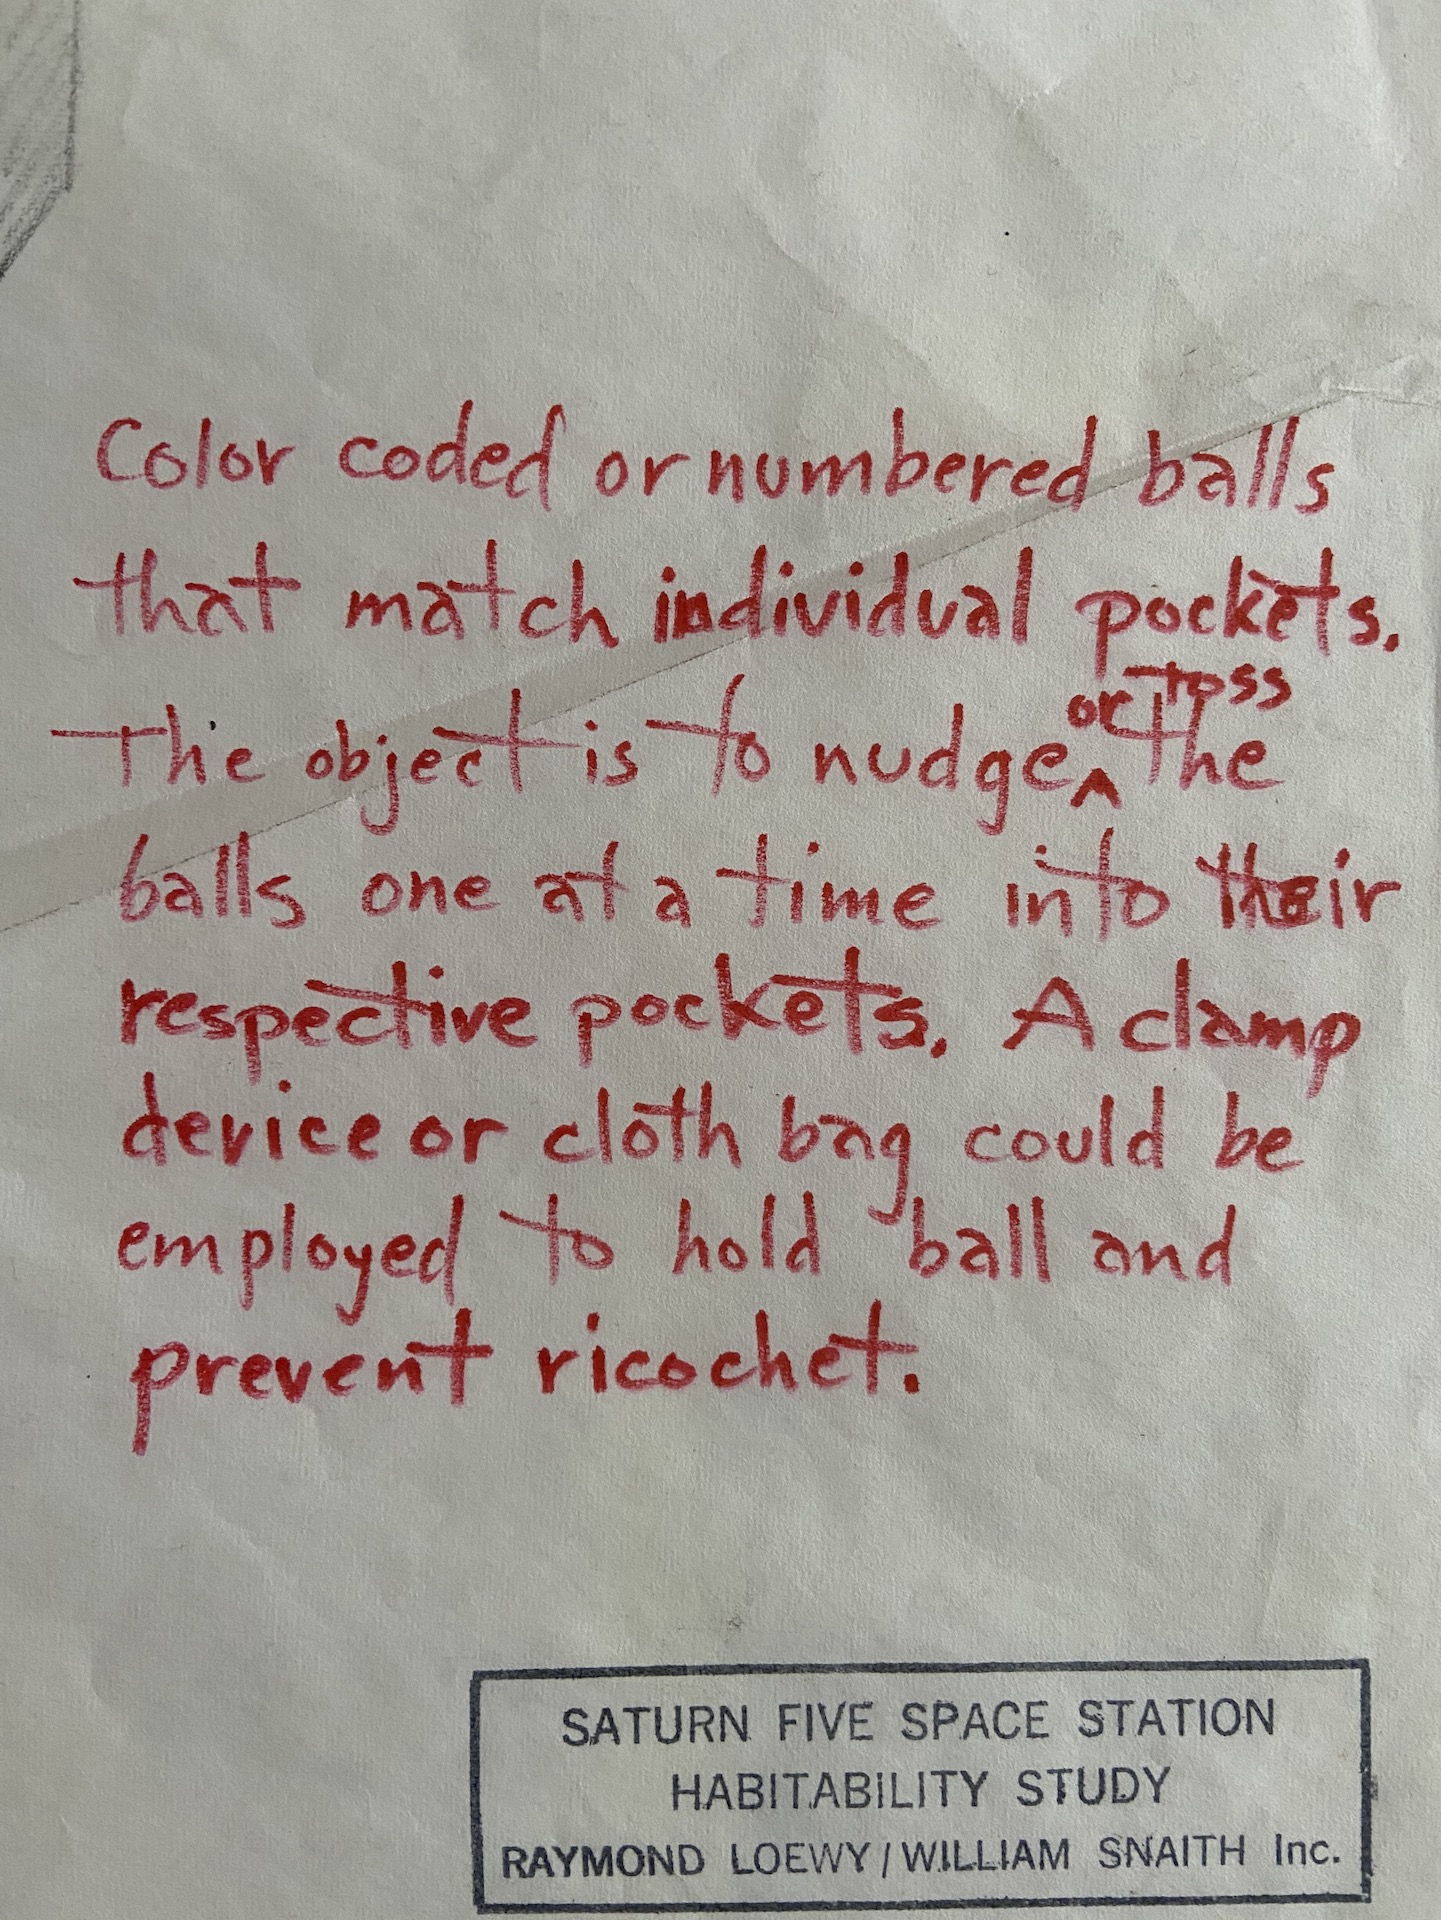 Color coded or numbered balls
that match individual pockets.
The object is to nudge or toss the
balls one at a time into their
respective pockets. A clamp
device or cloth bag could be
employed to hold ball and
prevent ricochet.
SATURN FIVE SPACE STATION
HABITABILITY STUDY
RAYMOND LOEWY/WILLIAM SNAITH Inc.